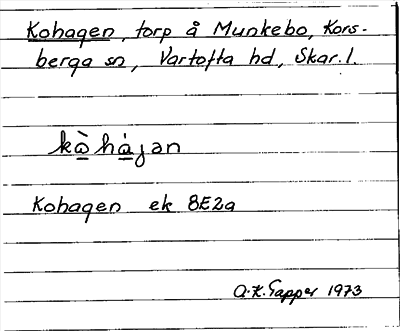 Kohagen, torp å Munkebo, Kors-
berga sn, Vartofta hd, Skar.l.
kò̲hà̲jan
Kohagen ek 8E2a
A.K. Tapper 1973